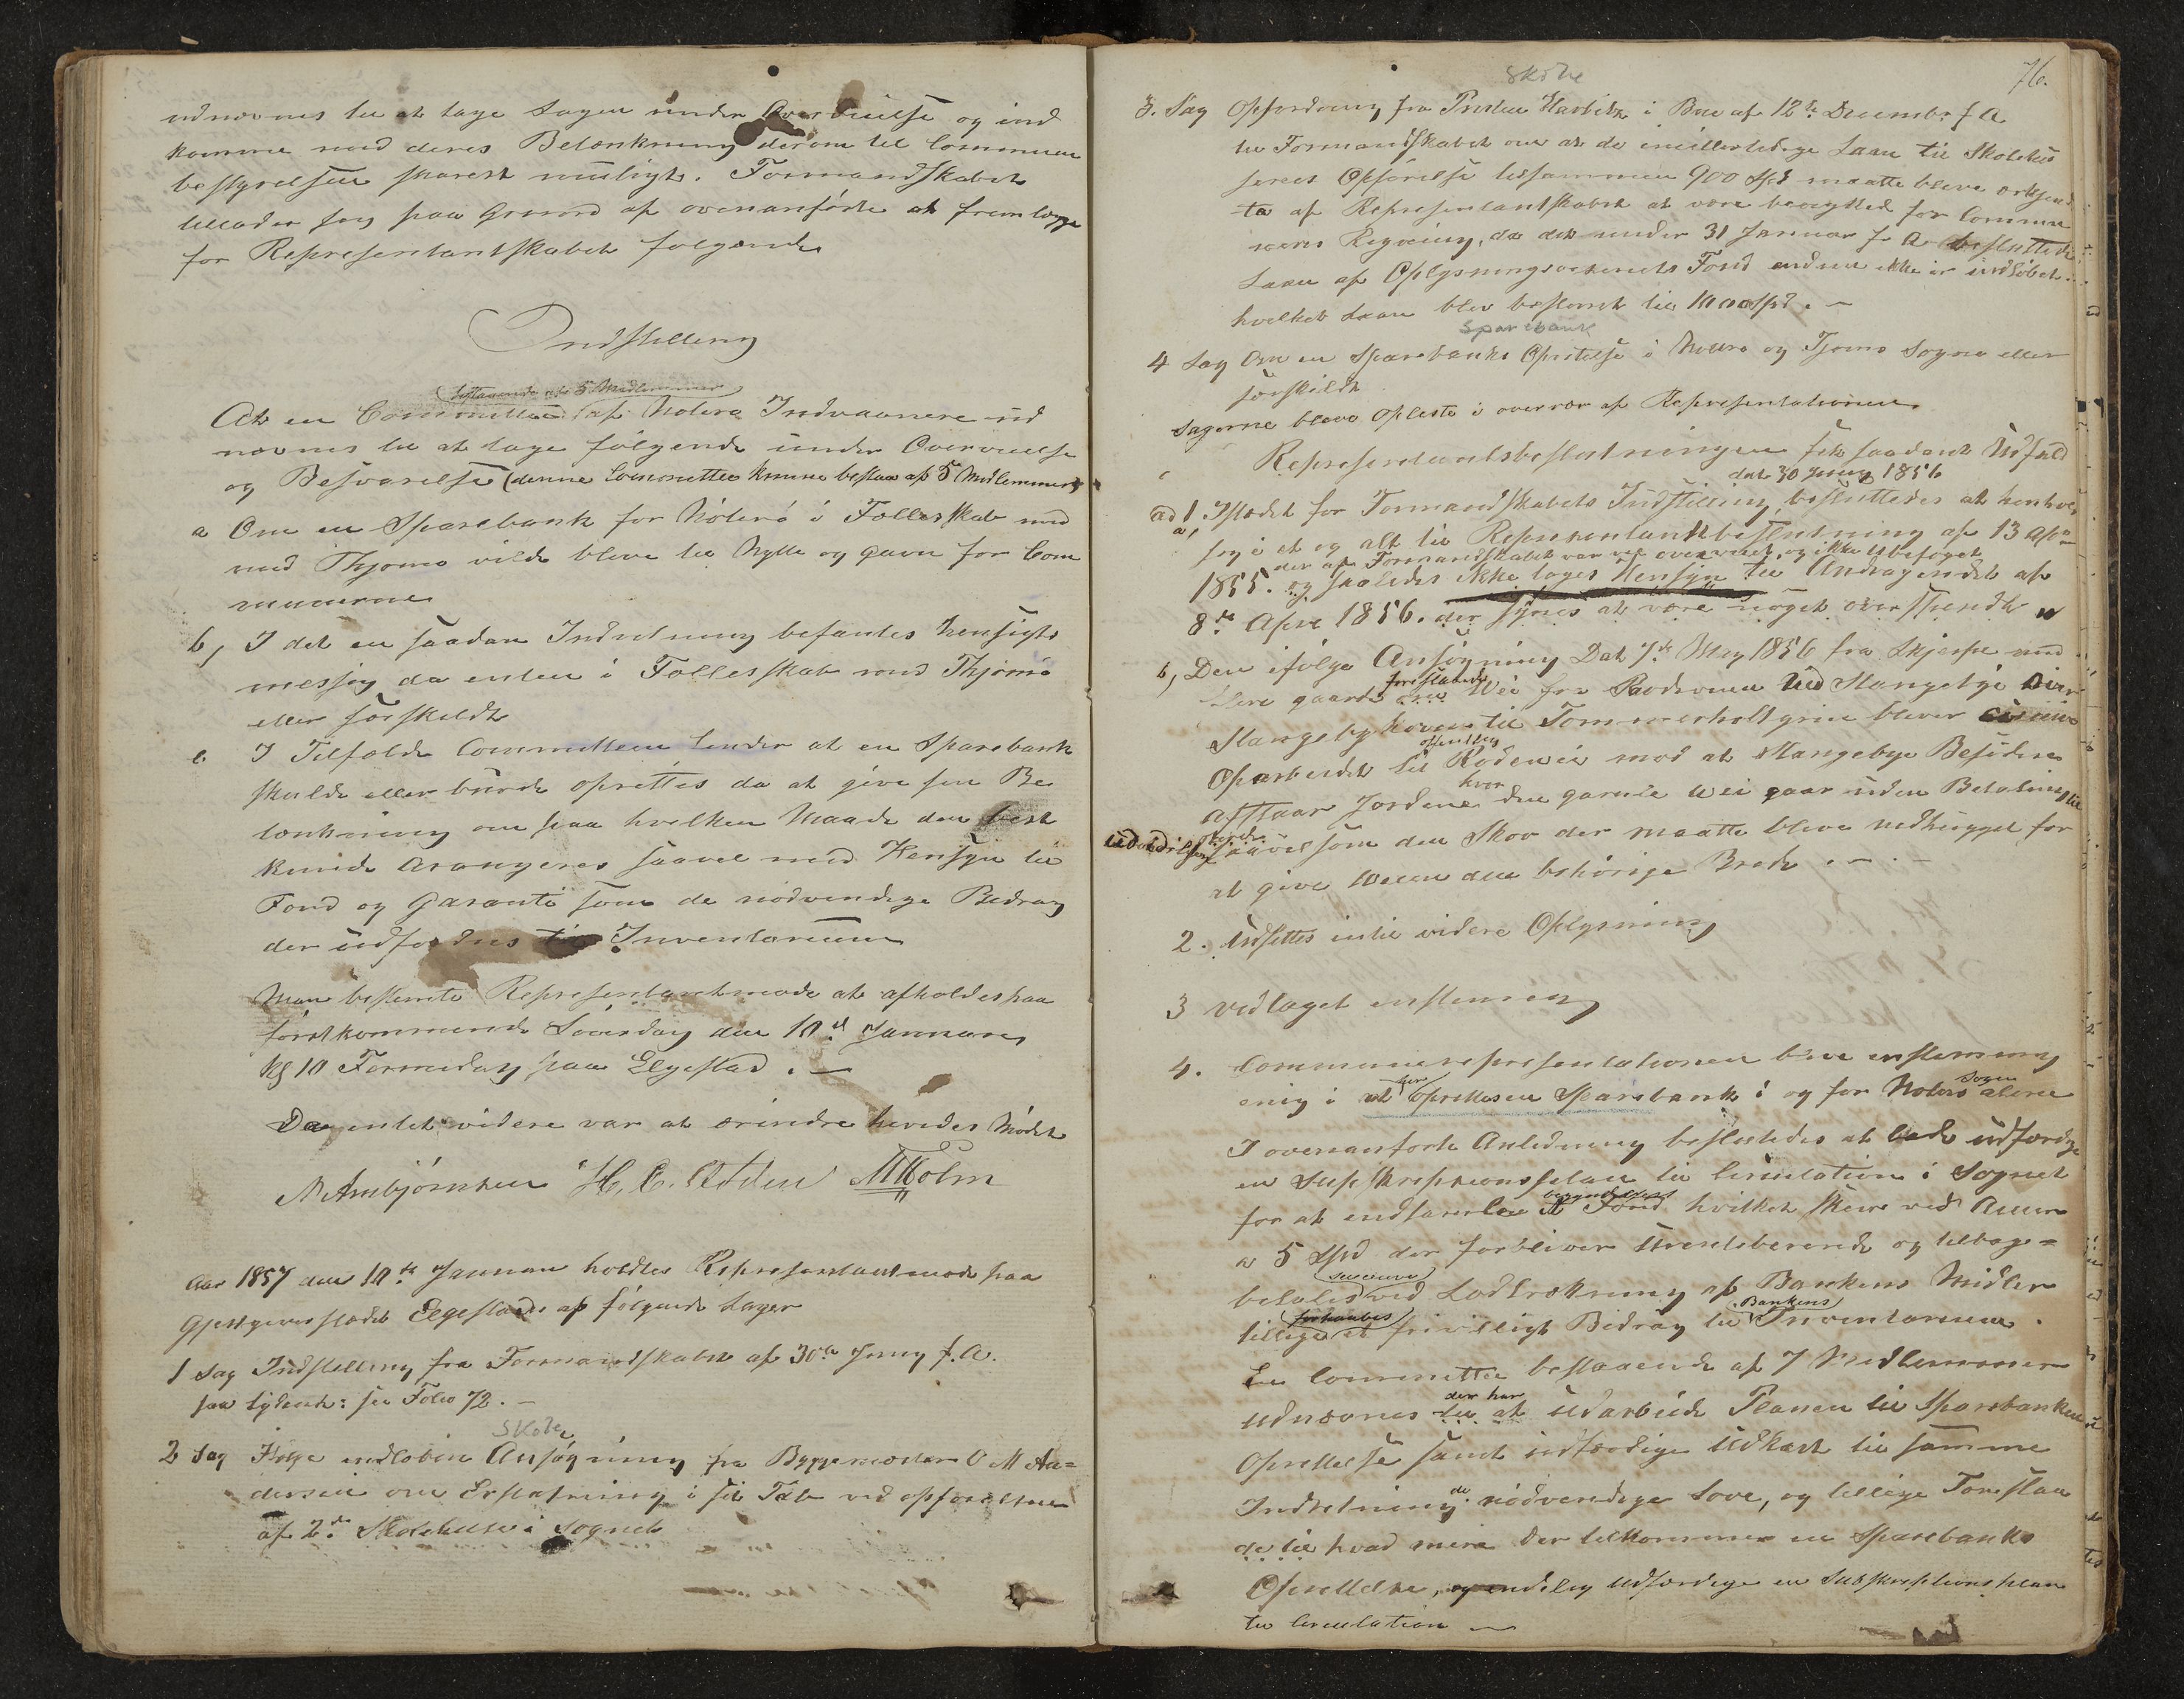 udnævnes til at tage Sagen under Overveielse og ind
komme med deres Betænkning derom til Commune
bestyrelsen snarest muligt. Formandskabet
tillader sig paa Grund af ovenanførte at fremlægge
for Representantskabet følgende
Indstilling
(bestaaende af 5 Medlemmer)
At en Committee af Nøterø Indvaanere ud
nævnes til at tage følgende under Overveielse
og Besvarelse (denne Committee kunne bestaa af 5 Medlemmer)
a Om en Sparebank for Nøterø i Fællesskab med
med Thjømø vilde blive til Nytte og gavn for Com
munerne
b, I det en saadan Indretning befantes hensigts
messig da enten i Fællesskab med Thjømø
eller særskildt
c. I Tilfælde Committeen finder at en Sparebank
skulde eller burde oprettes da at give sin Be
tænkning om paa hvilken Maade den best
kunde arangeres saavel med Hensyn til
Fond og Garanti som de nødvendige Bidrag
der udfordres til Inventarium
Man bestemte Representantmøde at afholdes paa
førstkommende Løverdag den 10de Januar
Kl 10 Formidag paa Elgestad. —
Da intet videre var at erindre hevedes Mødet
N Arnbjørnsen H. C. Olsen M Holm
Aar 1857 den 10de Januar holdtes Representantmøde paa
Gjestgiverstædet Elgestad af følgende Sager
1 Sag Indstilling fra Formandskabet af 30te Juny f. A.
saa lydende: see Folio 72. —
Skole
2 Sag Ifølge indløbne Ansøgning fra Byggemester O M An=
dersen om Erstatning i sit Tab ved opførelsen
af 2de Skolehuse i Sognet
76.
Skole
3. Sag Opfordring fra Presten i Brev af 12te Decembr f A
til Formandskabet om at de imidlertidige Laan til Skolehu
senes Opførelse tilsammen 900 Spd maatte blive erkjend
te af Representantskabet at være benyttet for Commu
nens Regning, da det under 31 Januar f. A. besluttede
Laan af Oplysningsvesenets Fond endnu ikke er indløbet.
hvilket Laan blev bestemt til 1000 Spd. —
Sparebank
4 Sag Om en Sparebanks Oprettelse i Nøterø og Tjømø Sogne eller
særskildt
Sagerne bleve oplæste i overvær af Representationen
Representantsbeslutningen fik saadant Udfald
dat 30 Juny 1856
ad 1. Istædet for Formandskabets Indstilling, besluttedes at henholde
a, sig i et og alt til Representantbeslutning af 13 Apr
der af Formandskabet var vel overveiet og ikke ubeføiet
1855. og saaledes ikke tages Hensyn til Andragendet af
8de Apr 1856. der synes at være noget overspendt
b, Den ifølge Ansøgning Dat 7de May 1856 fra Skjerpe med
foreslaaede
flere gaarde om Vei fra Rodeveien ved Stangebye over
Stangebyskoven til Tømmerholtgrin bliver
offentlig
Oparbeidet til Rodevei mod at Stangebye Besiddere
hvor
afstaar Jordene den gamle Vei gaar uden Betaling til
udvidelsen saavelsom den Skov der maatte blive nedhugget for
at give Veien den behørige Brede . — . —
2. Udsettes intil videre Oplysning
3 vedtaget enstemmig
4. Communerepresentationen blev enstemmig
enig i at oprettes en Sparebank i og for Nøterø Sogn alene
I ovenanførte Anledning besluttedes at lade udferdige
en Supskreptionsplan til Circulation i Sognet
for at indsamle et begyndelses Fond hvilket skeer ved Actier
a 5 Spd der forbliver urenteberende og tilbage=
(succesive)
betales ved Lodtrækning af Bankens Midler
(forhaabes) Bankens
tillige et frivilligt Bidrag til Inventarium.
En Committee bestaaende af 7 Medlemmer
der har
udnævnes til at udarbeide Planen til Sparebankens
Oprettelse samt udferdige Udkast til samme
Indretning de nødvendige Love, og tillige Foreslaa
de til hvad mere der tilkommer en Sparebanks
Oprettelse, og endelig udferdige en Subskreptionsplan
til Circulation —